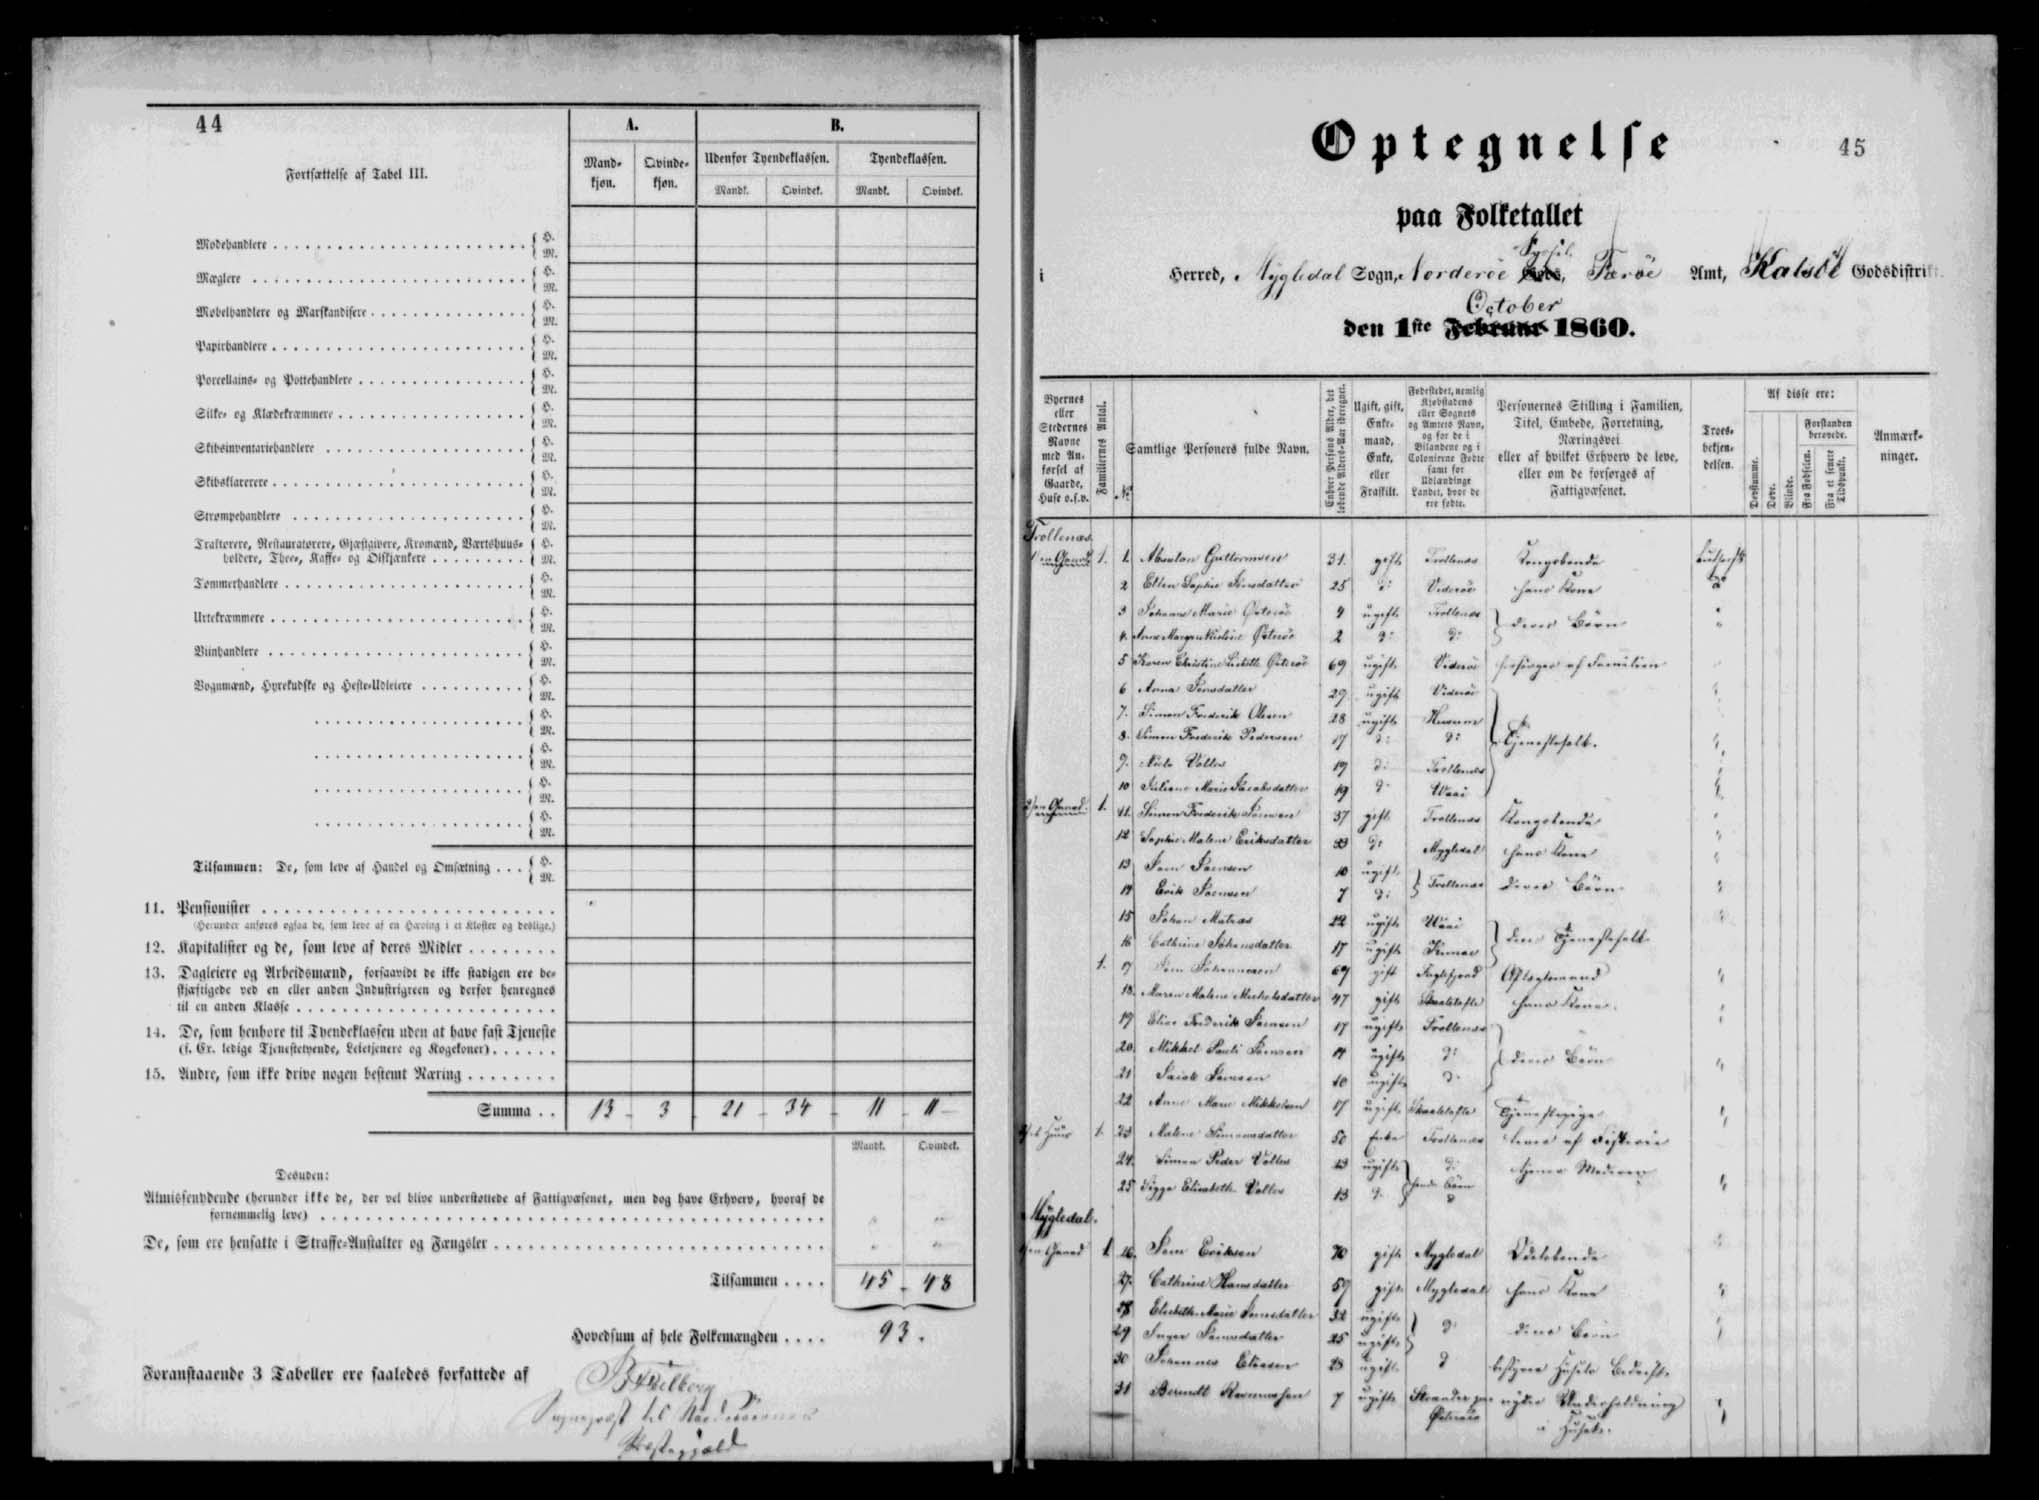 44
Fortsættelse af Tabel III.
A.
B.
Mandkjøn.
Qvindekjøn.
Udenfor Tyendeklassen.
Tyendeklassen.
Mandk.
Qvindek.
Mandk.
Qvindek.
Modehandlere H. M.
Mæglere H. M.
Møbelhandlere og Marskandisere H. M.
Papirhandlere H. M.
Porcellains- og Pottehandlere H. M.
Silke- og Klædekræmmere H. M.
Skibsinventariehandlere H. M.
Skibsklarerere H. M.
Strømpehandlere H. M.
Traktører, Restauratører, Gjæstgivere, Kromænd, Værtshuus- H.
holdere, Thee-, Kaffe- og Ølskjænkere M.
Tømmerhandlere H. M.
Urtekræmmere H. M.
Viinhandlere H. M.
Vognmænd, Hyrekudske og Heste-Udleiere H. M.
H. M.
H. M.
H. M.
H. M.
Tilsammen: De, som leve af Handel og Omsætning H. M.
11. Pensionister
(Herunder anføres ogsaa de, som leve af en Hæving i et Kloster og deslige.)
12. Kapitalister og de, som leve af deres Midler
13. Dagleiere og Arbeidsmænd, forsaavidt de ikke stadigen ere be-
skjæftigede ved en eller anden Industrigreen og derfor henregnes
til en anden Klasse
14. De, som henhøre til Tyendeklassen uden at have fast Tjeneste
(f. Ex. ledige Tjenestetyende, Leietjenere og Kogekoner)
15. Andre, som ikke drive nogen bestemt Næring
Summa . . 13 - 3 - 21 - 34 - 11 - 11 -
Mandk. Qvindek.
Desuden:
Almissenydende (herunder ikke de, der vel blive understøttede af Fattigvæsenet, men dog have Erhverv, hvoraf de
fornemmelig leve)
De, som ere hensatte i Straffe-Anstalter og Fængsler
Tilsammen . . . . 45 - 48
Hovedsum af hele Folkemængden . . . . 93.
Foranstaaende 3 Tabeller ere saaledes forfattede af
Sognepræst til Norderøernes
Præstegjæld
Optegnelse
45
paa Folketallet
Syssel
i Herred, Mygledal Sogn, Norderøe Gods, Færöe Amt, Kalsöe Godsdistrikt.
October
den 1ste Februar 1860.
Byernes eller Stedernes Navne med Anførsel af Gaarde, Huse o.s.v.
Familiernes Antal.
No
Samtlige Personers fulde Navn.
Enhver Persons Alder, det løbende Alders-Aar iberegnet.
Ugift, gift, Enkemand, Enke, eller Fraskilt.
Fødestedet, nemlig Kjøbstadens eller Sognets og Amtets Navn, og for de i Bilandene og i Colonierne Fødte samt for Udlændinge Landet, hvor de ere fødte.
Personernes Stilling i Familien, Titel, Embede, Forretning, Næringsvei eller af hvilket Erhverv de leve, eller om de forsørges af Fattigvæsenet.
Troesbekjendelsen.
Af disse ere:
Døvstumme.
Døve.
Blinde.
Forstanden berøvede.
Fra Fødselen.
Fra et senere Tidspunkt.
Anmærkninger.
Trollenæs
1ste Gaard 1. 1. Absalon Guttormsen 31. gift Trollenæs Kongsbonde Luthersk
2 Ellen Sophie Jensdatter 25 do Viderøe hans Kone do
3 Johanne Marie Østerøe 4 ugift Trollenæs deres Børn
4. Anne Margrethe Østerøe 2 do do
5 Karen Christine Lisbeth Østerøe 69 ugift Viderøe forsørges af Familien
6 Anna Jensdatter 29 ugift Viderøe
7. Simon Frederik Olesen 28 ugift Husum
8. Simon Frederik Pedersen 17 do do Tjenestefolk.
9. Niels Valles 19 do Trollenæs
10 Juliane Marie Jacobsdatter 19 do Waai
Gaard 1. 11. Simon Frederik Joensen 37 gift Trollenæs Kongsbonde
12 Sophie Malene Eriksdatter 33 do Mygledal hans Kone
13 Joen Joensen 10 ugift Trollenæs deres Børn
14 Erik Joensen 7 do
15 Johan Matras 22 ugift Waai deres Tjenestefolk
16 Cathrine Johansdatter 17 ugift
1. 17 Joen Johannesen 69 gift Fuglefjord Aftægtsmand
18. Maren Malene Michelsdatter 47 gift Skaaletofte hans Kone
19 Elias Frederik Joensen 17 ugift Trollenæs
20. Mikkel Pauli Joensen 14 ugift do deres Børn
21 Joensen 10 ugift do
22 Anne Marie Mikkelsen 17 ugift Skaaletofte Tjenestepige
Huus 1. 23 Malene Simonsdatter 50 Enke Trollenæs lever af Fiskerie
24. Simon Peder Valles 23 ugift do tjener Moderen
25 Sigga Elisabeth Valles 13 do hendes Børn do
Mygledal.
Gaard 1 26. Joen Eriksen 70 gift Mygledal Odelsbonde
27. Cathrine Hansdatter 59 gift Mygledal hans Kone
28 Elsebeth Marie Joensdatter 32 ugift do deres Børn
29 Inger Joensdatter 25 ugift
30 Johannes Eliasen 23 ugift do bestyrer Husets Bedrift.
31 Berendt Rasmussen 7 ugift Strænder paa Østerøe nyder Underholdning
i Huset.